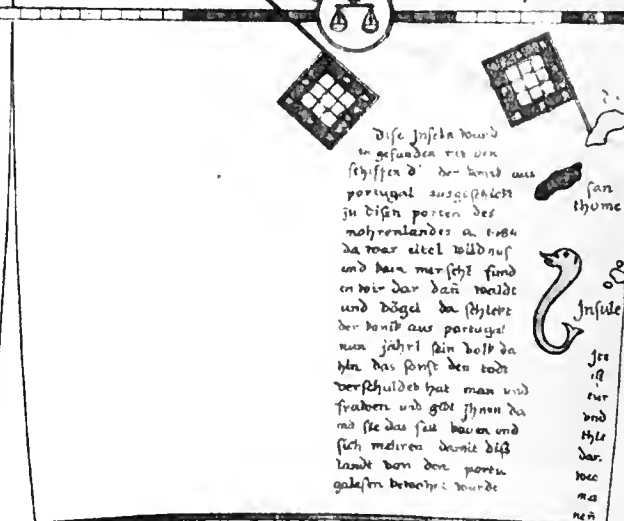 Dise Inseln wurd
en gefunden mit den
schiffen d' der konik aus
portugal ausgeschickt
zu disen porten des
mohrenlandes a. 1484
da war eitel wildnus
und kein mensche fund
en wir dar dañ waldt
und vögel da schickt
der konik aus portugal
nun jährl sein volk da
hin das sonst den todt
verschuldet hat man und
frawen und gibt ihnen da
mit sie das felt bauen und
sich mehren damit diß
landt von den portu
galesen bewohnt wurde
san
thome
Insule
ist
tur
vnd
dar.
ma
neñ